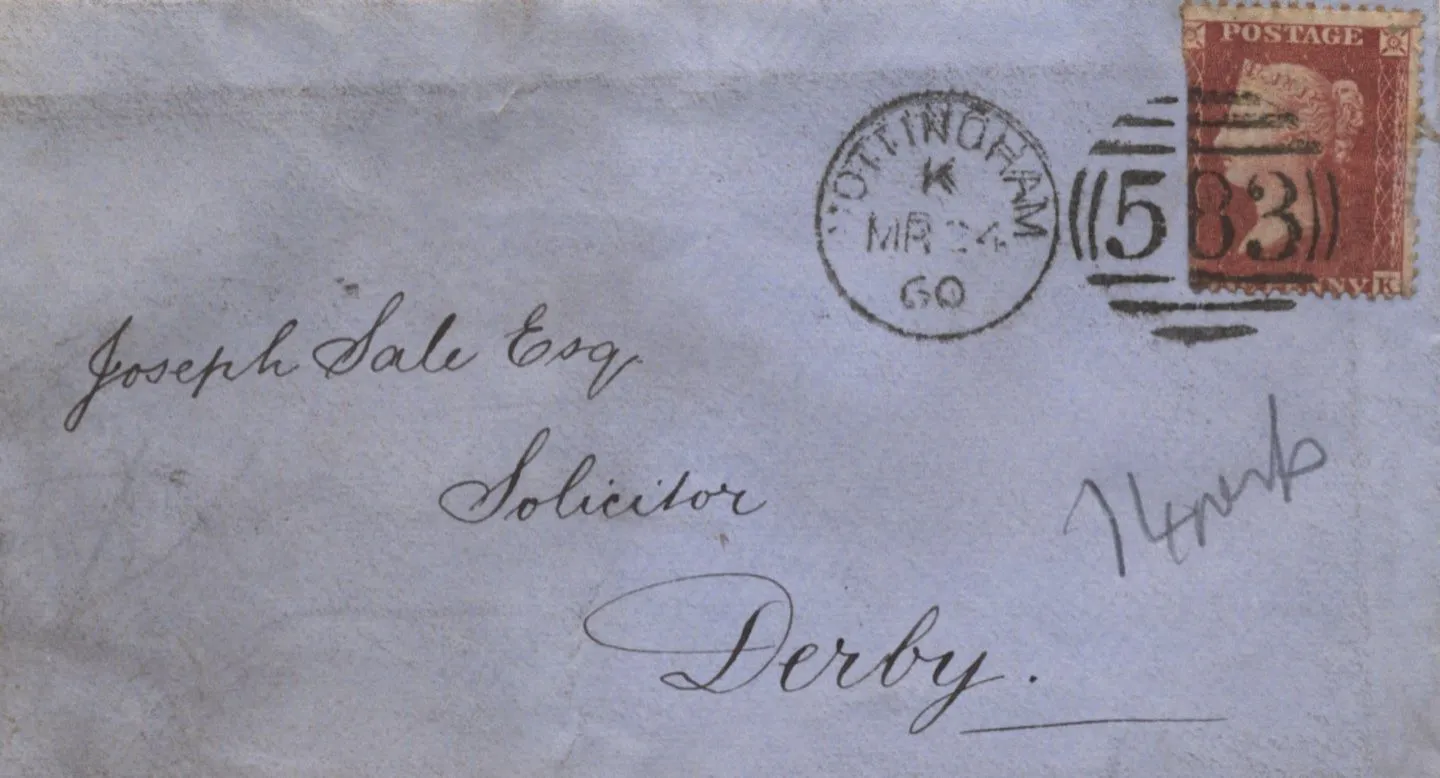 POSTAGE
NOTTINGHAM
K
MR 24
60
583
K
Joseph Sale Esq.
Solicitor
14 perf
Derby.